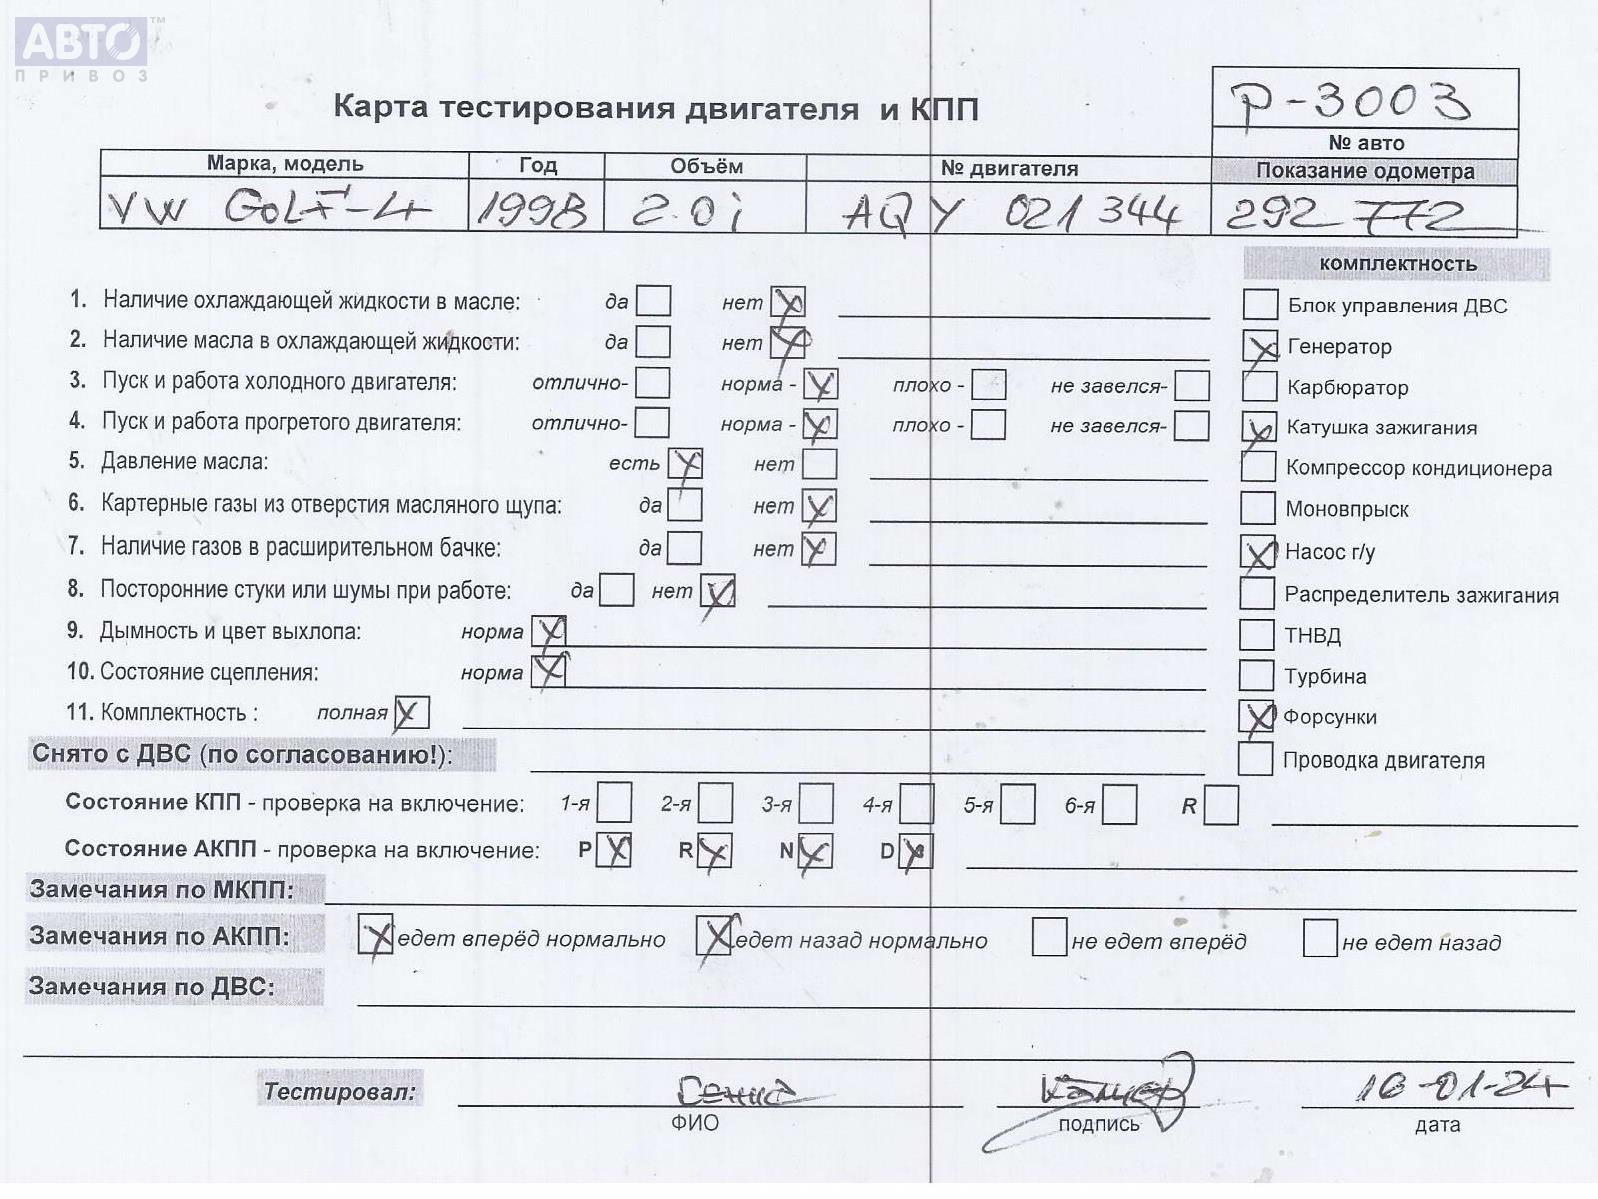 АВТО™
ПРИВОЗ
Карта тестирования двигателя и КПП
P-3003
№ авто
Марка, модель Год Объём № двигателя Показание одометра
VW GOLF-4 1998 2.0i AQY 021344 292 772
комплектность
1. Наличие охлаждающей жидкости в масле: да нет X
Блок управления ДВС
2. Наличие масла в охлаждающей жидкости: да нет X
X Генератор
3. Пуск и работа холодного двигателя: отлично- норма - X плохо - не завелся-
Карбюратор
4. Пуск и работа прогретого двигателя: отлично- норма - X плохо - не завелся-
X Катушка зажигания
5. Давление масла: есть X нет
Компрессор кондиционера
6. Картерные газы из отверстия масляного щупа: да нет X
Моновпрыск
7. Наличие газов в расширительном бачке: да нет X
X Насос г/у
8. Посторонние стуки или шумы при работе: да нет X
Распределитель зажигания
9. Дымность и цвет выхлопа: норма X
ТНВД
10. Состояние сцепления: норма X
Турбина
11. Комплектность : полная X
X Форсунки
Снято с ДВС (по согласованию!):
Проводка двигателя
Состояние КПП - проверка на включение: 1-я 2-я 3-я 4-я 5-я 6-я R
Состояние АКПП - проверка на включение: P X R X N X D X
Замечания по МКПП:
Замечания по АКПП: X едет вперёд нормально X едет назад нормально не едет вперёд не едет назад
Замечания по ДВС:
Тестировал: 16-01-24
ФИО подпись дата